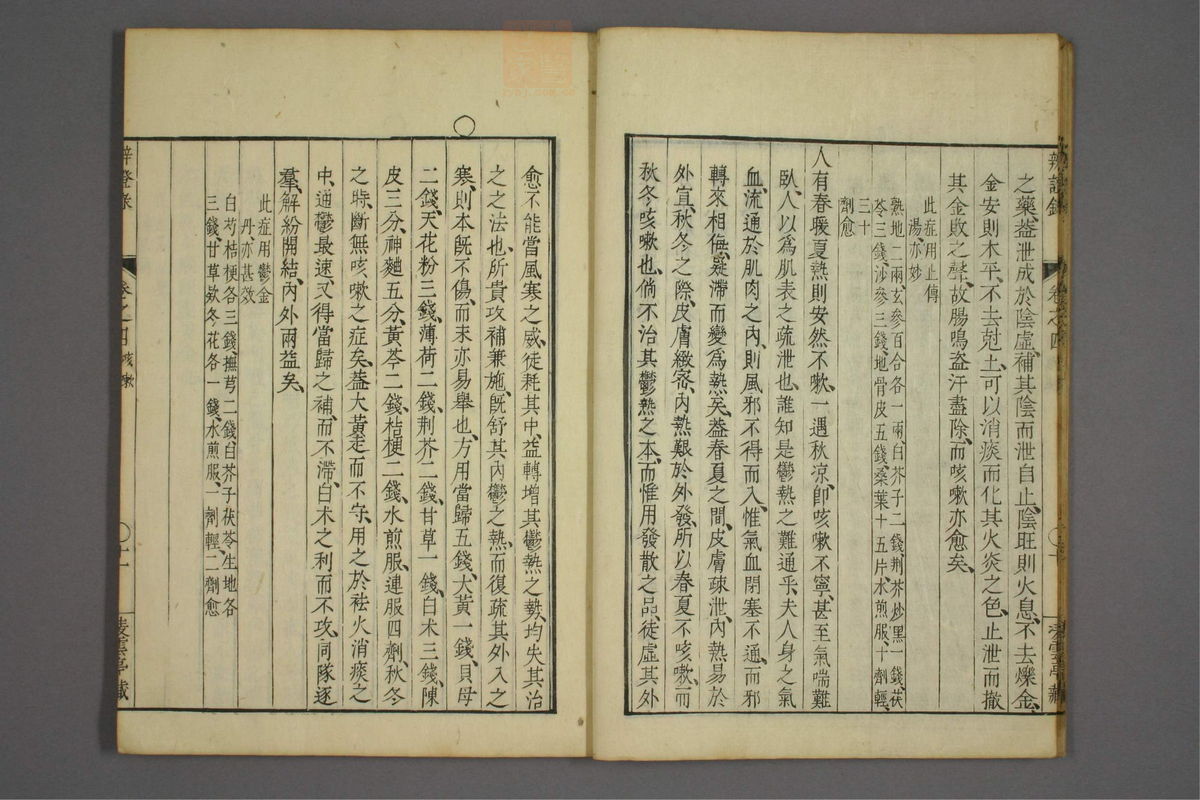 之藥、葢泄成於陰虛、補其陰而泄自止、陰旺則火息、不去爍金、
金安則木平、不去尅土、可以消痰而化其火炎之色、止泄而撤
其金敗之聲、故腸鳴盗汗盡除、而咳嗽亦愈矣、
此症用止傳
湯亦妙
熟地二兩、玄參百合各一兩、白芥子二錢、荆芥炒黑一錢、茯
苓三錢、沙參三錢、地骨皮五錢、桑葉十五片、水煎服、十劑輕、
三十
劑愈
人有春暖夏熱則安然不嗽、一遇秋凉、卽咳嗽不寧、甚至氣喘難
臥、人以爲肌表之疏泄也、誰知是鬱熱之難通乎、夫人身之氣
血、流通於肌肉之內、則風邪不得而入、惟氣血閉塞不通、而邪
轉來相侮、凝滯而變爲熱矣、葢春夏之間、皮膚疎泄、內熱易於
外宜、秋冬之際、皮膚緻密、內熱艱於外發、所以春夏不咳嗽、而
秋冬咳嗽也、倘不治其鬱熱之本、而惟用發散之品、徒虛其外
愈不能當風寒之威、徒耗其中、益轉增其鬱熱之勢、均失其治
之之法也、所貴攻補兼施、旣舒其內鬱之熱、而復疏其外入之
寒、則本旣不傷、而末亦易舉也、方用當歸五錢、大黃一錢、貝母
二錢、天花粉三錢、薄荷二錢、荆芥二錢、甘草一錢、白术三錢、陳
皮三分、神麯五分、黃芩二錢、桔梗二錢、水煎服、連服四劑、秋冬
之時、斷無咳嗽之症矣、葢大黃走而不守、用之於祛火消痰之
中、通鬱最速、又得當歸之補、而不滯、白术之利而不攻、同隊逐
羣、解紛開結、內外兩益矣、
此症用鬱金
丹亦甚效
白芍桔梗各三錢、撫芎二錢、白芥子茯苓生地各
三錢、甘草欵冬花各一錢、水煎服、一劑輕、二劑愈
辨證錄 卷之四 咳嗽